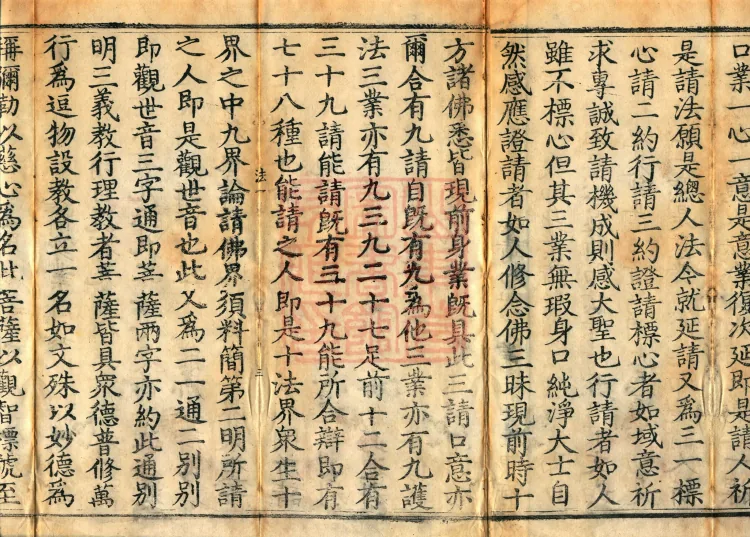 口業一心一意是意業復次延即是請人祈
是請法願是總人法今就延請又爲三一標
心請二約行請三約證請標心者如域意祈
求專誠致請機成則感大聖也行請者如人
雖不標心但其三業無瑕身口純淨大士自
然感應證請者如人修念佛三昧現前時十
方諸佛悉皆現前身業既具此三請口意亦
爾合有九請自既有九爲他三業亦有九護
法三業亦有九三九二十七足前十二合有
三十九請能請既有三十九能所合辯即有
七十八種也能請之人即是十法界衆生十
法
三
界之中九界論請佛界須料簡第二明所請
之人即是觀世音也此又爲二一通二別別
即觀世音三字通即菩薩兩字亦約此通別
明三義教行理教者菩薩皆具眾德普修萬
行爲逗物設教各立一名如文殊以妙德爲
稱彌勒以慈心爲名此菩薩以觀智標號至